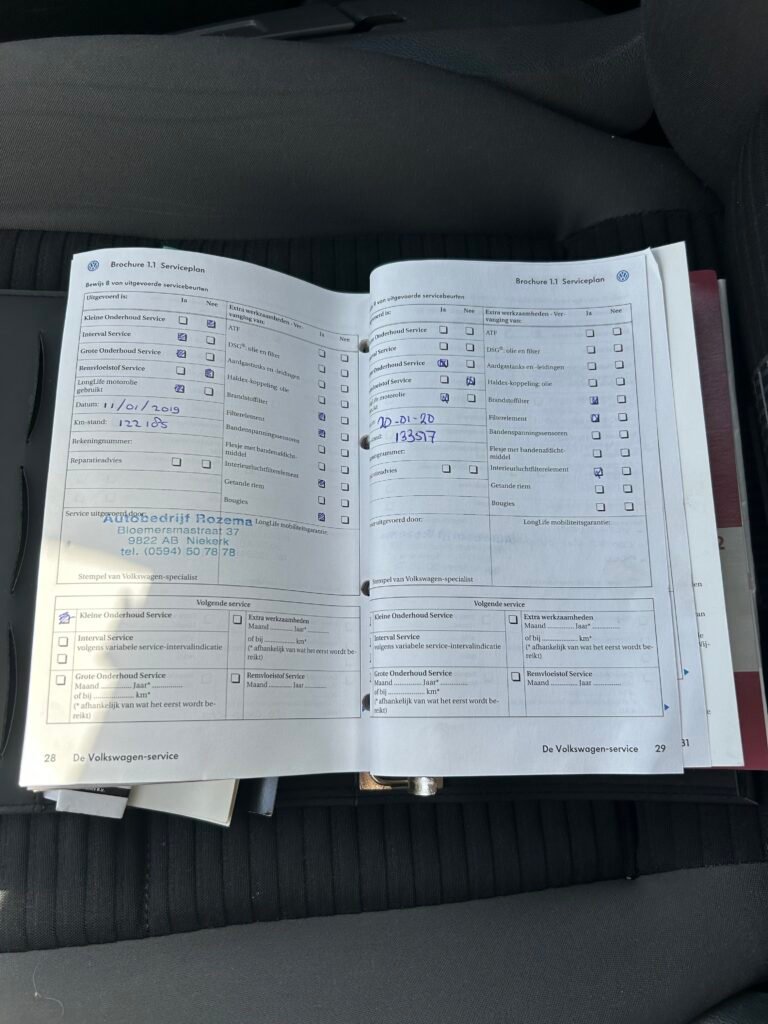 Brochure 1.1 Serviceplan
Bewijs 8 van uitgevoerde servicebeurten
Uitgevoerd is:
Ja
Nee
Kleine Onderhoud Service
Interval Service
Grote Onderhoud Service
Remvloeistof Service
LongLife motorolie
gebruikt
Datum: 11/01/2019
Km-stand: 122185
Rekeningnummer:
Reparatieadvies
Extra werkzaamheden - Ver-
vanging van:
Ja
Nee
ATF
DSG®, olie en filter
Aardgastanks en -leidingen
Haldex-koppeling: olie
Brandstoffilter
Filterelement
Bandenspanningssensoren
Flesje met bandenafdicht-
middel
Interieurluchtfilterelement
Getande riem
Bougies
Service uitgevoerd door:
Autobedrijf Rozema
Bloemersmastraat 37
9822 AB Niekerk
tel. (0594) 50 78 78
LongLife mobiliteitsgarantie:
Stempel van Volkswagen-specialist
Volgende service
Kleine Onderhoud Service
Interval Service
volgens variabele service-intervalindicatie
Grote Onderhoud Service
Maand ........... Jaar* ...............
of bij ............... km*
(* afhankelijk van wat het eerst wordt be-
reikt)
Extra werkzaamheden
Maand ............ Jaar* ...........
of bij ............... km*
(* afhankelijk van wat het eerst wordt be-
reikt)
Remvloeistof Service
Maand ........... Jaar ............
28
De Volkswagen-service
Brochure 1.1 Serviceplan
van uitgevoerde servicebeurten
Ja
Nee
Onderhoud Service
Service
Onderhoud Service
Service
motorolie
20-01-20
133517
Extra werkzaamheden - Ver-
vanging van:
Ja
Nee
ATF
DSG®, olie en filter
Aardgastanks en -leidingen
Haldex-koppeling: olie
Brandstoffilter
Filterelement
Bandenspanningssensoren
Flesje met bandenafdicht-
middel
Interieurluchtfilterelement
Getande riem
Bougies
uitgevoerd door:
LongLife mobiliteitsgarantie:
Stempel van Volkswagen-specialist
Volgende service
Kleine Onderhoud Service
Interval Service
volgens variabele service-intervalindicatie
Grote Onderhoud Service
Maand ........... Jaar* ...............
of bij ............... km*
(* afhankelijk van wat het eerst wordt be-
reikt)
Extra werkzaamheden
Maand ............ Jaar* ............
of bij ............... km*
(* afhankelijk van wat het eerst wordt be-
reikt)
Remvloeistof Service
Maand ............ Jaar ............
De Volkswagen-service
29
31